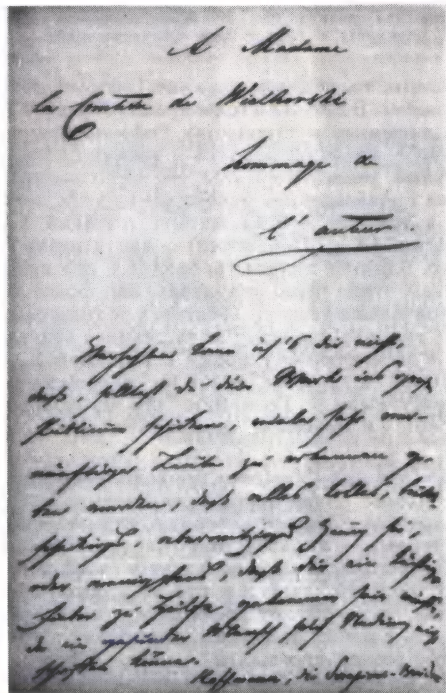 A Madame
la Comtesse de Wialhorski
hommage de
l'auteur.
Verhehlen kann ich's dir nicht,
daß, solltest du dies Werk ins große
Publikum schicken, viele sehr ver-
nünftige Leute zu erkennen ge-
ben werden, daß alles tolles, bunt-
scheckiges, aberwitziges Zeug sei,
oder wenigstens, daß dir ein tüchtig
Fieber zu Hülfe gekommen sein müsse,
da ein gesunder Mensch solch Unding nicht
schaffen könne.
Hoffmann, die Serapions-Brüder